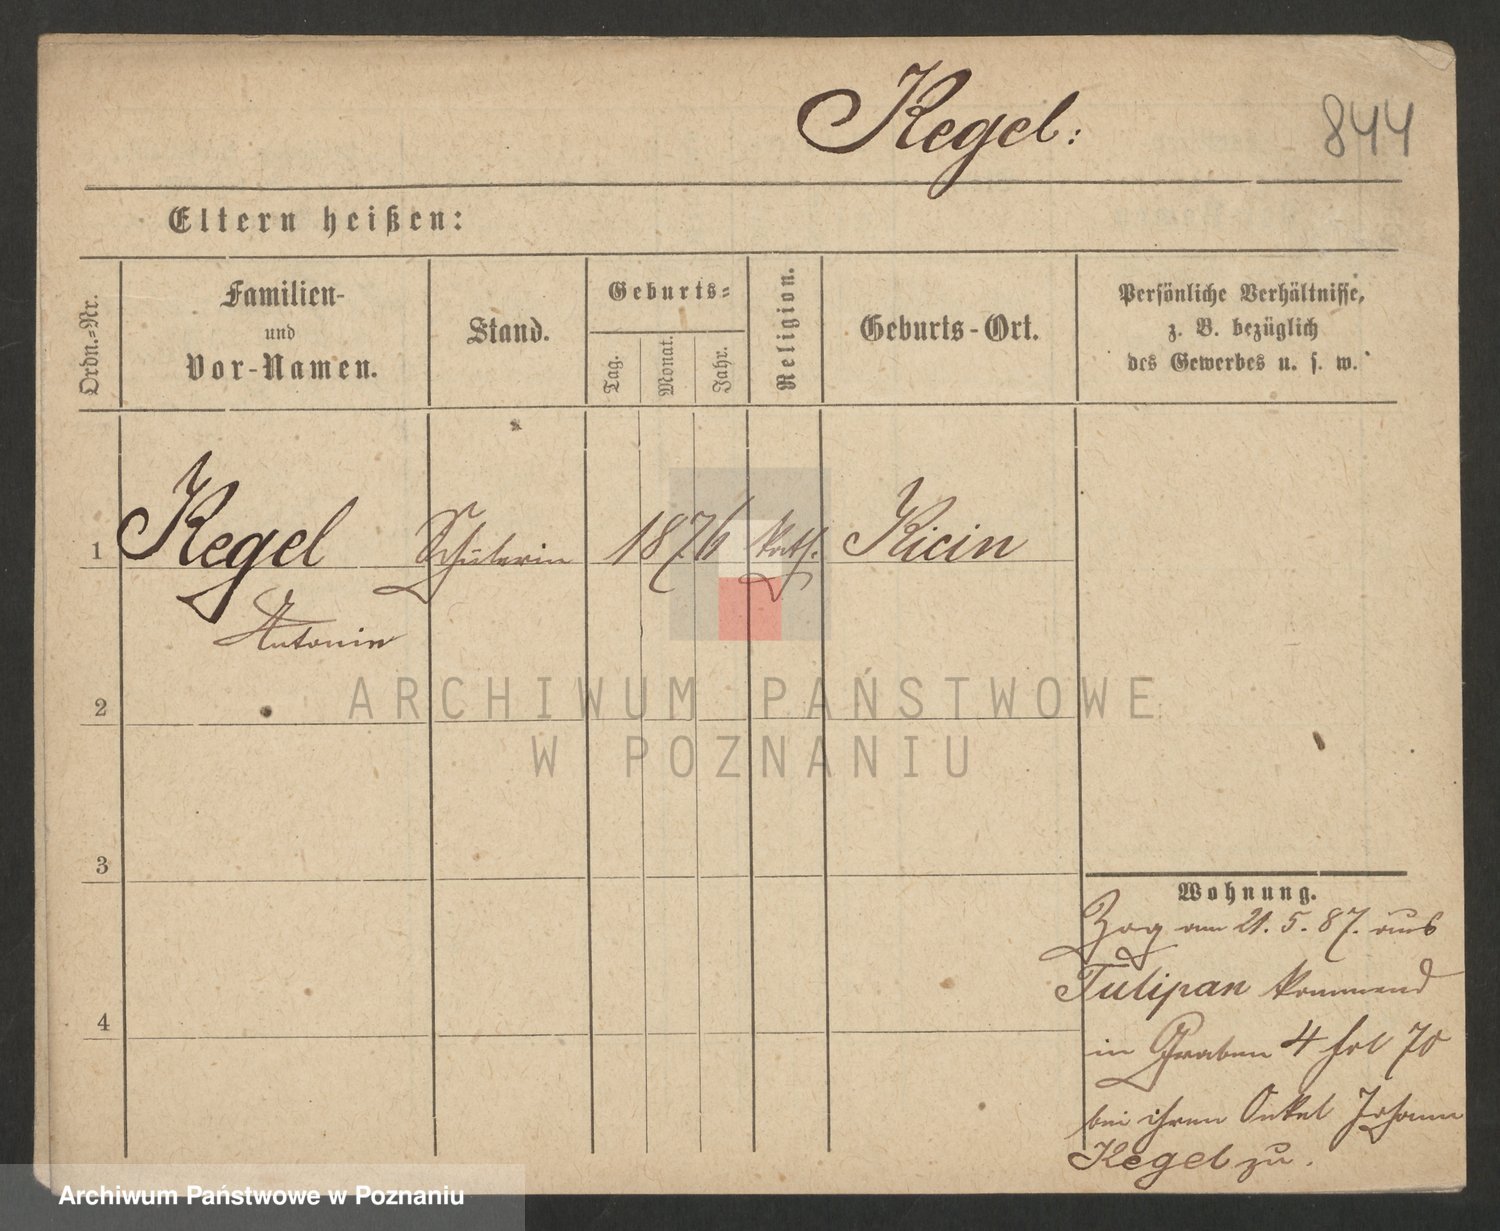 Kegel:
844
Eltern heißen:
Ordn.-Nr.
Familien-
und
Vor-Namen.
Stand.
Geburts-
Tag.
Monat.
Jahr.
Religion.
Geburts-Ort.
Persönliche Verhältnisse,
z. B. bezüglich
des Gewerbes u. s. w.
1 Kegel Schülerin 1876 kath. Kicin
Antonie
2
3
4
Wohnung.
Zog am 21. 5. 87. aus
Tulipan kommend
in Graben 4 fol 70
bei ihrem Onkel Johann
Kegel zu.
ARCHIWUM PAŃSTWOWE
W POZNANIU
Archiwum Państwowe w Poznaniu